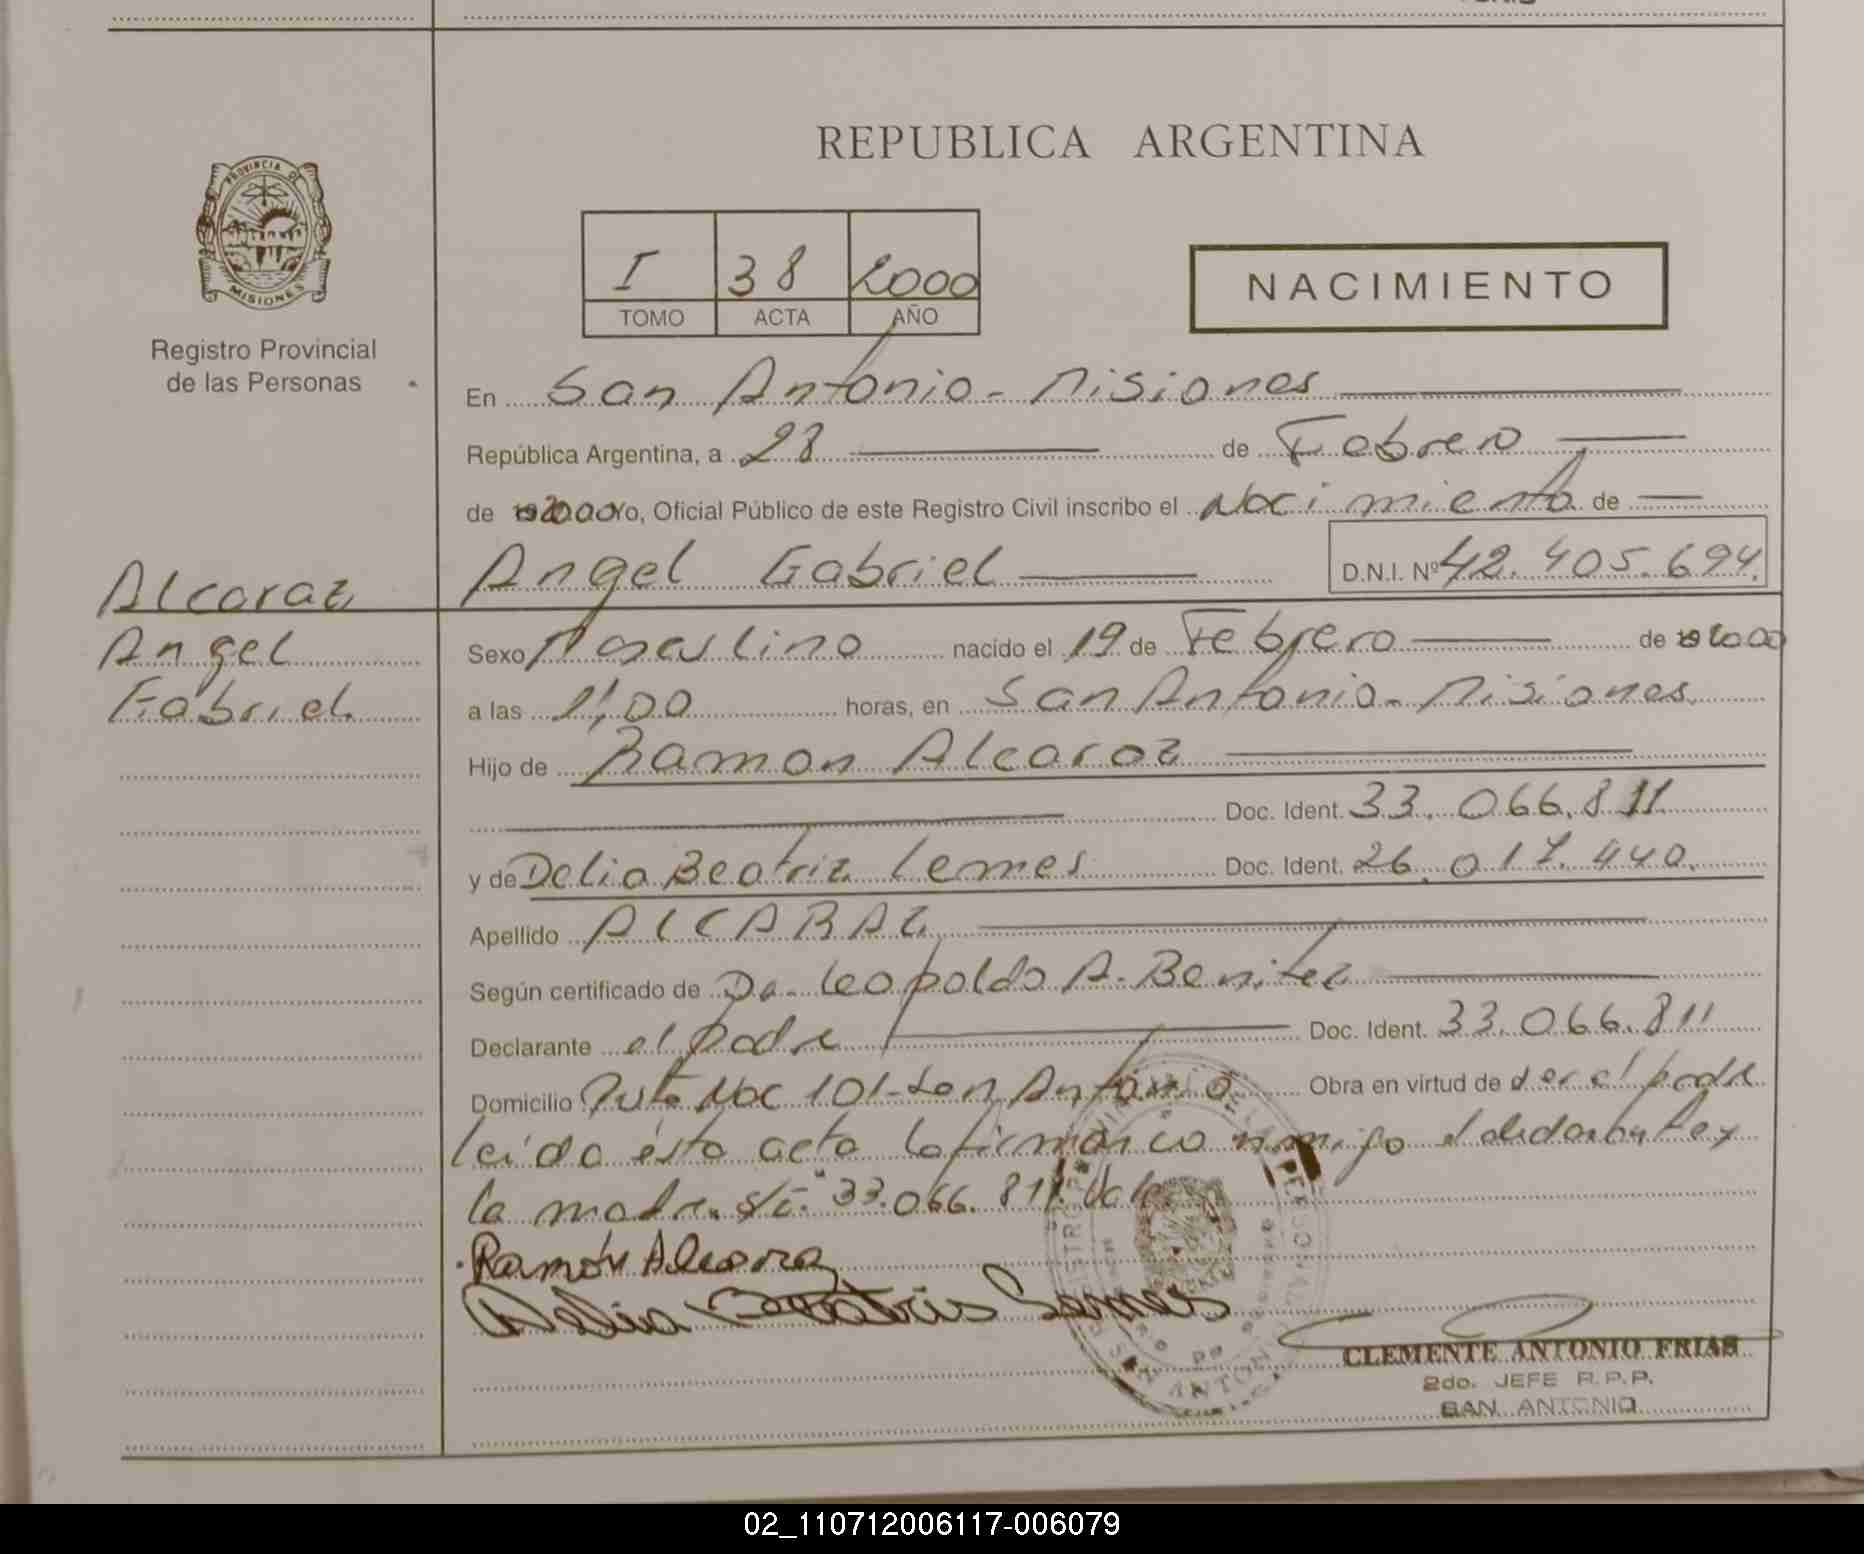 REPUBLICA ARGENTINA
PROVINCIA DE
MISIONES
Registro Provincial
de las Personas
I 38 2000
TOMO ACTA AÑO
NACIMIENTO
En San Antonio - Misiones
República Argentina, a 28 de Febrero
de 2000 Yo, Oficial Público de este Registro Civil inscribo el Nacimiento de
Angel Gabriel D.N.I. Nº 42.405.694
Alcaraz
Angel
Gabriel
Sexo Masculino nacido el 19 de Febrero de 2000
a las 1,00 horas, en San Antonio - Misiones
Hijo de Ramon Alcaraz
Doc. Ident. 33.066.811
y de Delia Beatriz Lemes Doc. Ident. 26.017.440.
Apellido ALCARAZ
Según certificado de Da. Leopoldo A. Benitez
Declarante el padre Doc. Ident. 33.066.811
Domicilio Ruta Nac 101 - San Antonio Obra en virtud de ser el padre
leída ésta acta la firman conmigo el declarante y
la madre. s/c: "33.066.811. Vale
Ramón Alcaraz
Delia Beatris Lemes
CLEMENTE ANTONIO FRIAS
2do. JEFE R.P.P.
SAN ANTONIO
02_110712006117-006079